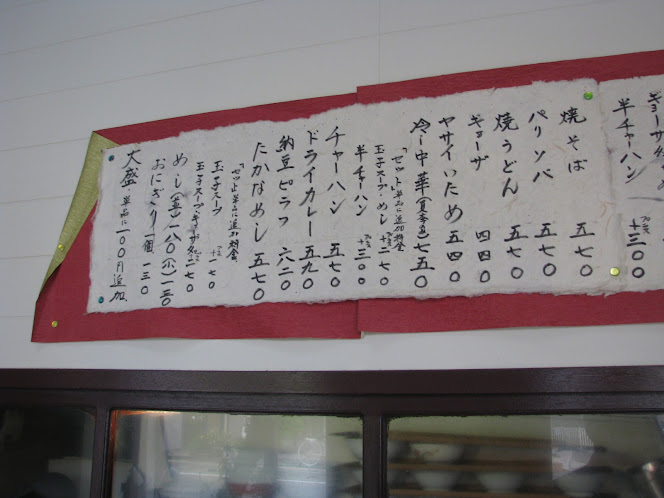 半チャーハン プラス+三〇〇
焼そば 五七〇
パリソバ 五七〇
焼うどん 五七〇
ギョーザ 四四〇
ヤサイいため 五四〇
冷し中華(夏季)七五〇
「セット」単品に追加料金
玉子スープ・めし プラス+二七〇
半チャーハン プラス+三〇〇
チャーハン 五七〇
ドライカレー 五九〇
納豆ピラフ 六二〇
たかなめし 五七〇
「セット」単品に追加料金
玉子スープ プラス+七〇
玉子スープ・ギョーザ プラス+二七〇
めし(並)一八〇(小)一三〇
おにぎり一個 一三〇
大盛・単品に一〇〇円追加